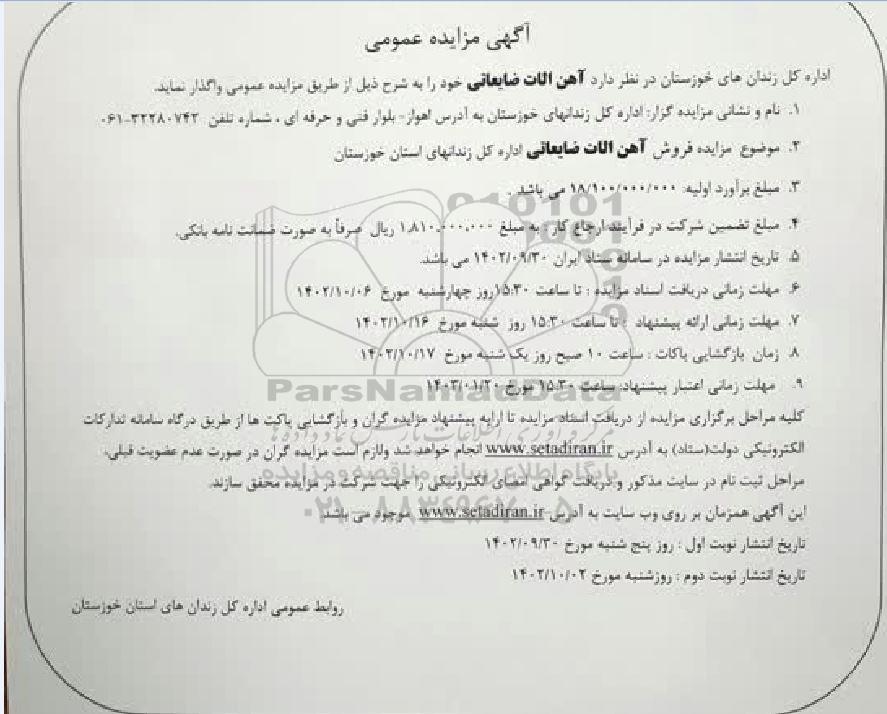 آگهی مزایده عمومی
اداره کل زندان های خوزستان در نظر دارد آهن الات ضایعاتی خود را به شرح ذیل از طریق مزایده عمومی واگذار نماید.
۱. نام و نشانی مزایده گزار: اداره کل زندانهای خوزستان به آدرس اهواز- بلوار فنی و حرفه ای ، شماره تلفن ۳۲۲۸۰۷۴۲-۰۶۱
۲. موضوع مزایده فروش آهن الات ضایعاتی اداره کل زندانهای استان خوزستان
۳. مبلغ برآورد اولیه: ۱۸/۱۰۰/۰۰۰/۰۰۰ می باشد .
۴. مبلغ تضمین شرکت در فرآیند ارجاع کار : به مبلغ ۱،۸۱۰،۰۰۰،۰۰۰ ریال صرفاً به صورت ضمانت نامه بانکی.
۵. تاریخ انتشار مزایده در سامانه ستاد ایران ۱۴۰۲/۰۹/۳۰ می باشد.
۶. مهلت زمانی دریافت اسناد مزایده : تا ساعت ۱۵:۳۰روز چهارشنبه مورخ ۱۴۰۲/۱۰/۰۶
۷. مهلت زمانی ارائه پیشنهاد : تا ساعت ۱۵:۳۰ روز شنبه مورخ ۱۴۰۲/۱۰/۱۶
۸. زمان بازگشایی پاکات : ساعت ۱۰ صبح روز یک شنبه مورخ ۱۴۰۲/۱۰/۱۷
۹. مهلت زمانی اعتبار پیشنهاد: ساعت ۱۵:۳۰ مورخ ۱۴۰۳/۰۱/۳۰
ParsNamadData
کلیه مراحل برگزاری مزایده از دریافت اسناد مزایده تا ارایه پیشنهاد مزایده گران و بازگشایی پاکت ها از طریق درگاه سامانه تدارکات
الکترونیکی دولت(ستاد) به آدرس www.setadiran.ir انجام خواهد شد ولازم است مزایده گران در صورت عدم عضویت قبلی،
پایگاه اطلاع رسانی مناقصه و مزایده
مراحل ثبت نام در سایت مذکور و دریافت گواهی امضای الکترونیکی را جهت شرکت در مزایده محقق سازند.
۰۲۱-۸۸۳۴۹۶۷۰-۵
این آگهی همزمان بر روی وب سایت به آدرس www.setadiran.ir موجود می باشد.
تاریخ انتشار نوبت اول : روز پنج شنبه مورخ ۱۴۰۲/۰۹/۳۰
تاریخ انتشار نوبت دوم : روزشنبه مورخ ۱۴۰۲/۱۰/۰۲
روابط عمومی اداره کل زندان های استان خوزستان